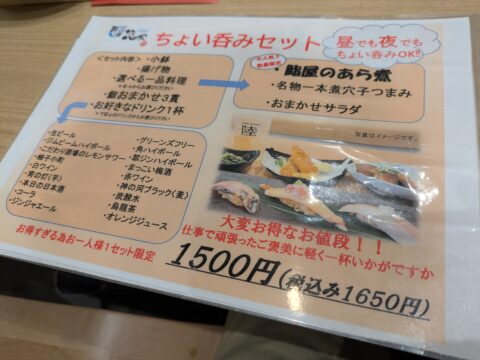 ちょい呑みセット
昼でも夜でも
ちょい呑みOK!!
<セット内容>・小鉢
・揚げ物
・選べる一品料理
・鮨おまかせ3貫
・お好きなドリンク1杯
鮨屋のあら煮
・名物一本煮穴子つまみ
・おまかせサラダ
・生ビール
・ジムビームハイボール
・こだわり酒場のレモンサワー
・柚子小町
・白ワイン
・本日の日本酒
・コーラ
・ジンジャエール
・グリーンズフリー
・角ハイボール
・翠ジンハイボール
・まっこい梅酒
・赤ワイン
・神の河ブラック(麦)
・炭酸水
・烏龍茶
・オレンジジュース
写真はイメージです。
お得すぎる為お一人様1セット限定
大変お得なお値段!!
仕事で頑張ったご褒美に軽く一杯いかがですか
1500円(税込み1650円)